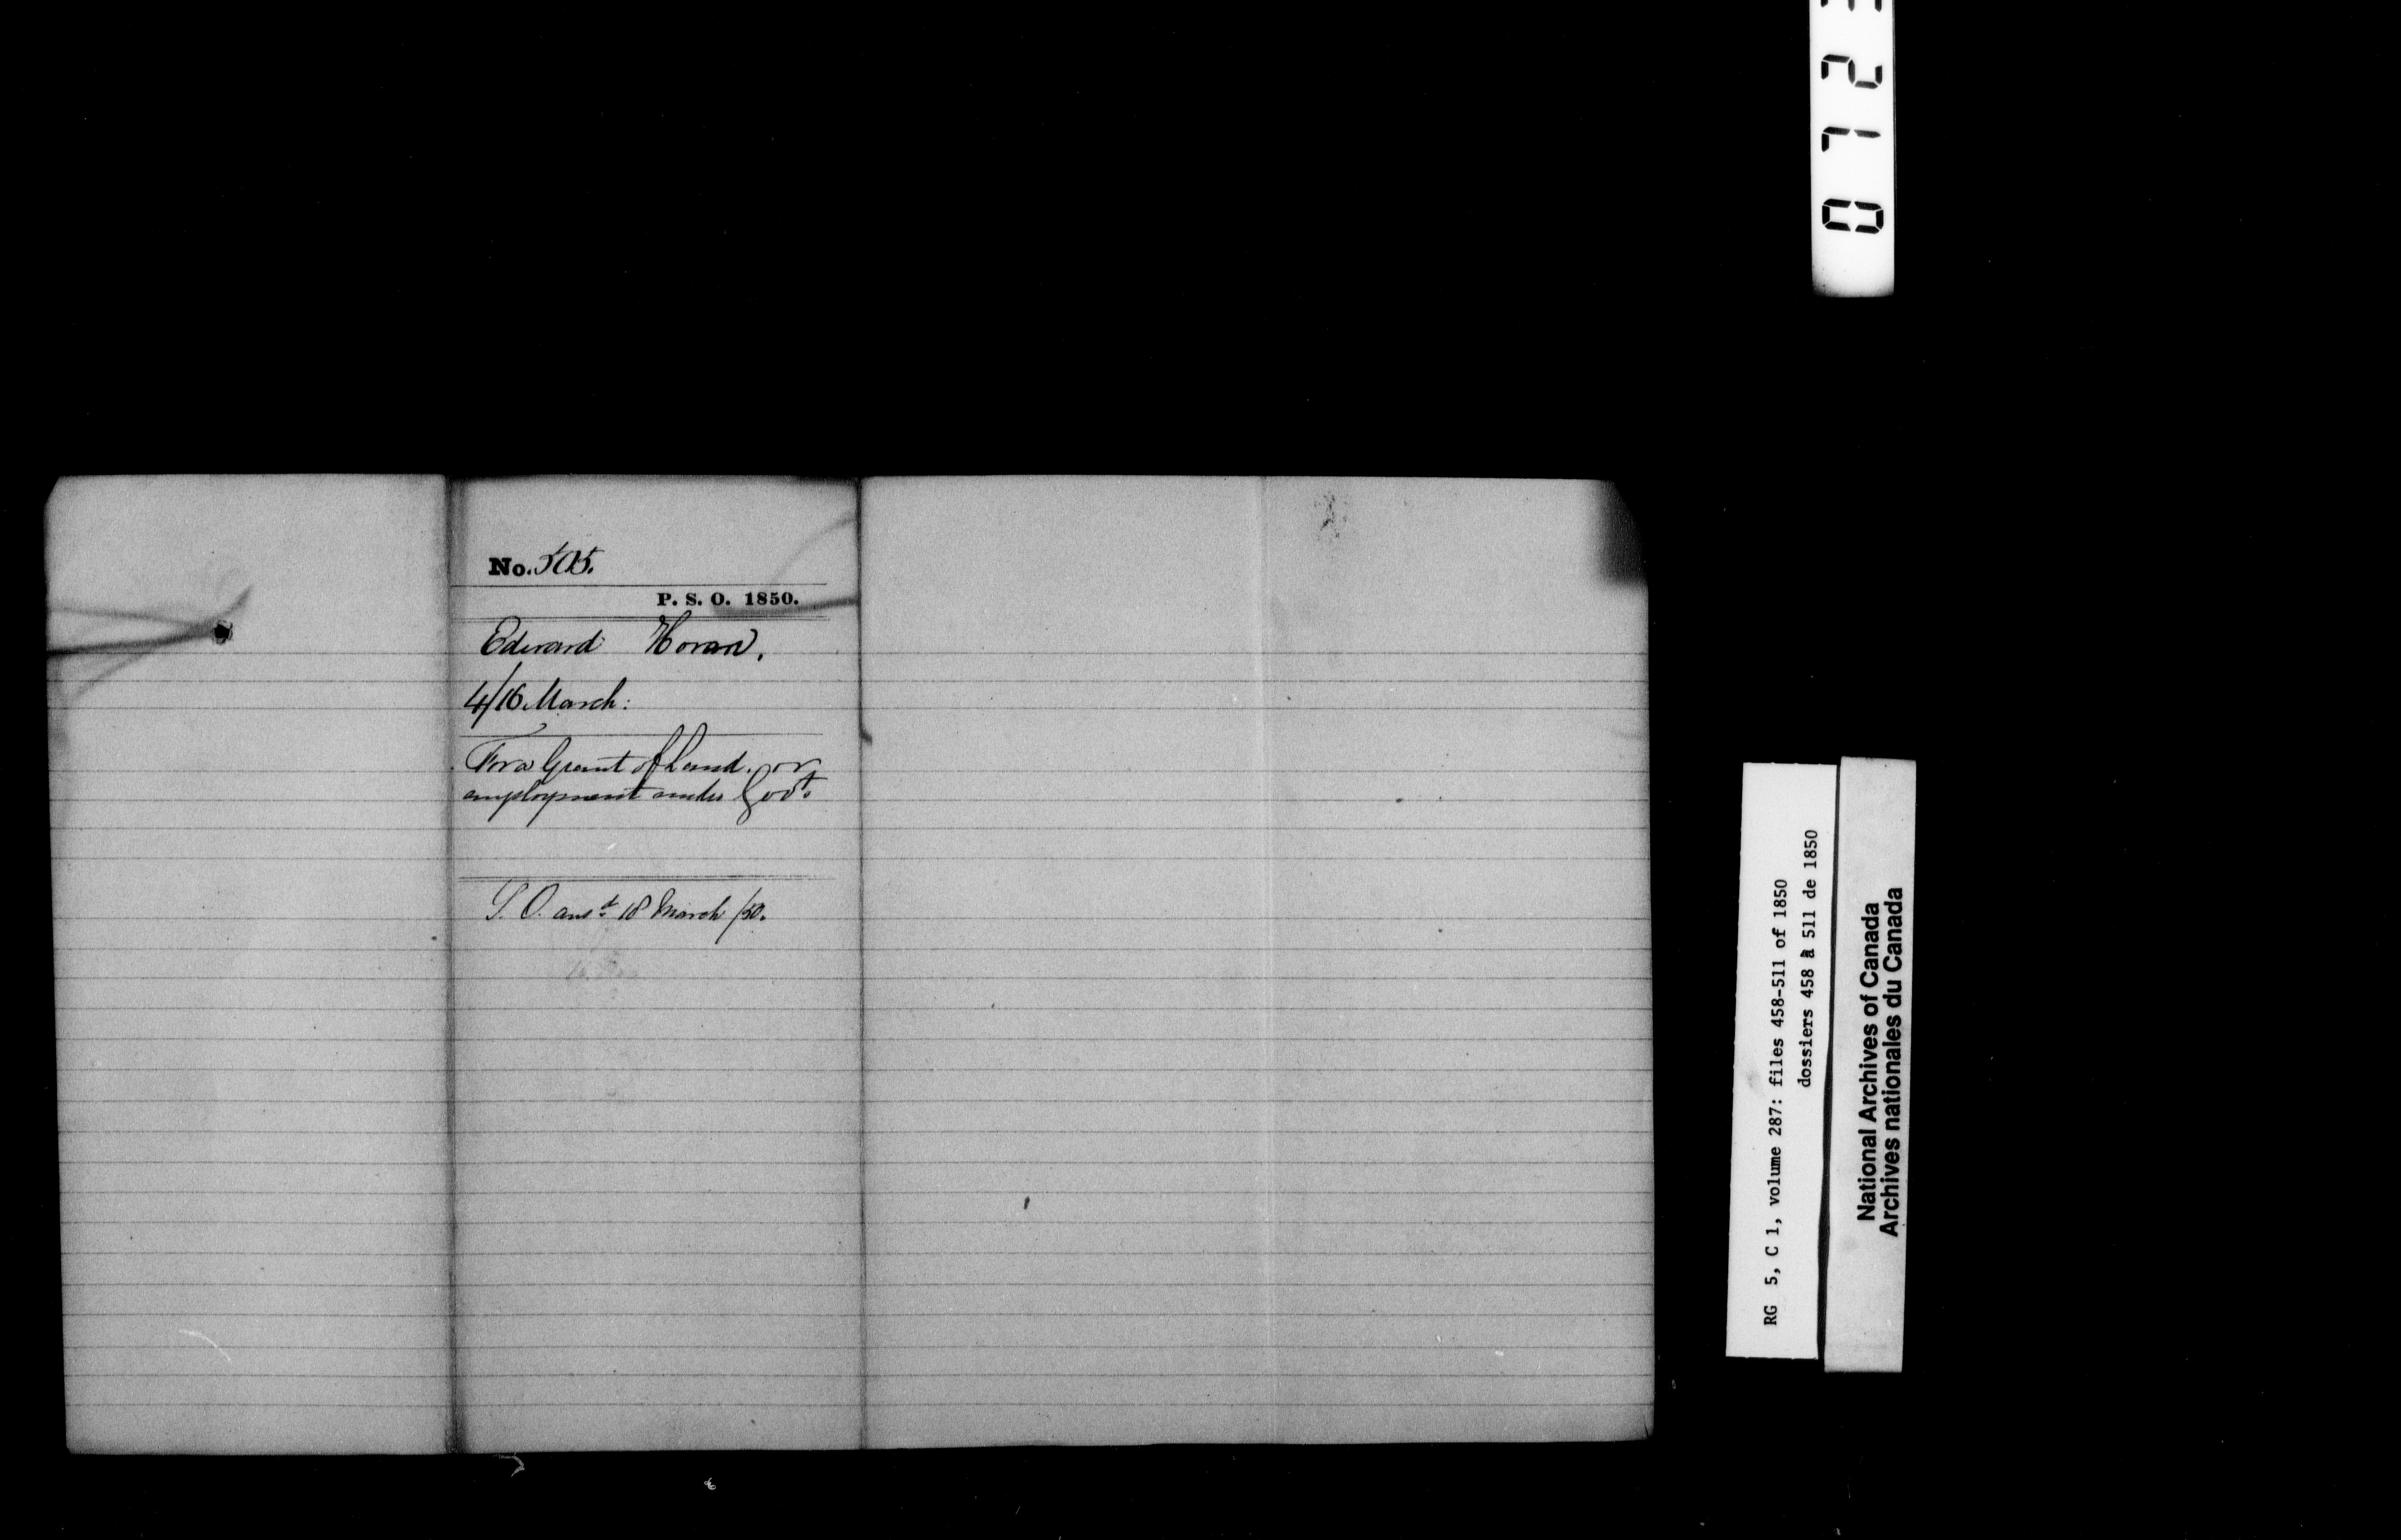 No. 505.
P. S. O. 1850.
Edward Horan.
4/16 March:
For a Grant of Land. or
employment under Govt.
S. O. ansd. 18 March /50.
RG 5, C 1, volume 287: files 458-511 of 1850
dossiers 458 à 511 de 1850
National Archives of Canada
Archives nationales du Canada
0723